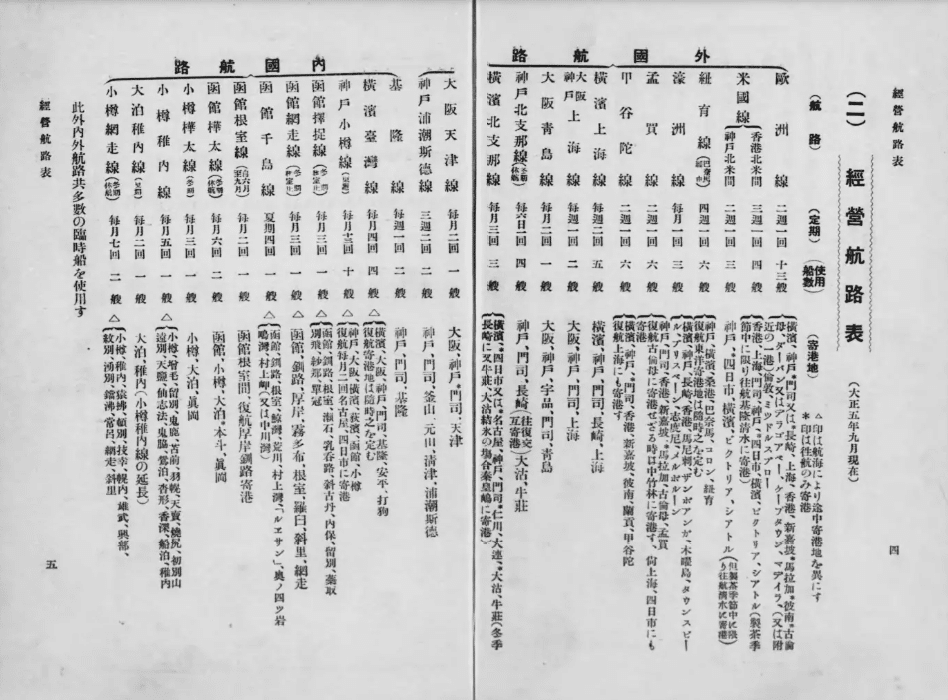 經營航路表
四
(二) 經營航路表 (大正五年九月現在)
△印は航海により途中寄港地を異にす
*印は往航のみ寄港
(航路) (定期) (使用船數) (寄港地)
外國航路
歐洲線 二週一回 十三艘
橫濱、神戶、*門司又は、長崎、上海、香港、新嘉坡、*馬拉加、*彼南、*古倫
母、ダーバン又はデラゴアベー、ケープタウン、マデイラ、(又は附
近の一港)倫敦、ミッドルスブロー
米國線
香港北米間 三週一回 四艘
香港、上海、門司、神戶、四日市、橫濱、ビクトリア、シアトル(製茶季
節中に限り往航基隆淸水に寄港)
神戶北米間 每月一回 三艘
神戶、*四日市、橫濱、ビクトリア、シアトル(但製茶季節中に限り往航淸水に寄港)
紐育線 四週一回 六艘
神戶、橫濱、桑港、巴奈馬、コロン、紐育
復航東洋寄港地は隨時之を定む
濠洲線 每月一回 三艘
橫濱、神戶、長崎、香港、馬尼剌、ザンボアンガ、木曜島、タウンスビー
ル、ブリスベーン、シドニー、メルボルン
孟買線 二週一回 六艘
神戶、*門司、香港、新嘉坡、*馬拉加、古倫母、孟買
復航古倫母に寄港せざる時は中竹林に寄港す、尙上海、四日市にも
寄港
甲谷陀線 二週一回 六艘
橫濱、神戶、*門司、香港、新嘉坡、彼南、蘭貢、甲谷陀
復航上海にも寄港す
橫濱上海線 每週二回 五艘 橫濱、神戶、門司、長崎、上海
大阪神戶上海線 每週一回 二艘 大阪、神戶、門司、上海
大阪靑島線 每月二回 一艘 大阪、神戶、宇品、門司、靑島
神戶北支那線(冬期休航) 每六日一回 四艘 神戶、門司、長崎(往復交互寄港)大沽、牛莊
橫濱北支那線 每月三回 三艘
橫濱、四日市又は、*名古屋、神戶、門司、*仁川、大連、*大沽、牛莊(冬季
長崎に又牛莊、大沽結氷の場合秦皇嶋に寄港)
大阪天津線 每月二回 一艘 大阪、神戶、*門司、天津
神戶浦潮斯德線 三週二回 二艘 神戶、門司、釜山、元山、淸津、浦潮斯德
內國航路
基隆線 每週一回 二艘 神戶、門司、基隆
橫濱臺灣線 每月四回 四艘 △
橫濱、大阪、神戶、*門司、基隆、安平、打狗
復航寄港地は隨時之を定む
神戶小樽線 每月十三回 十艘 △
神戶、大阪、橫濱、荻濱、函館、小樽
復航每月二回名古屋、四日市に寄港
函館擇捉線 每月三回 一艘
函館、釧路、根室、*振石、乳呑路、斜古丹、內保、留別、蘂取
別飛、紗那、單冠
函館網走線 每月三回 一艘 △ 函館、釧路、厚岸、霧多布、根室、羅臼、斜里、網走
函館千島線 夏期四回 一艘 △
函館、釧路、根室、*鯨灣、荒川、村上灣、「ルエサン」、奧ノ四ツ岩
鳴灣、村上岬(又は中川灣)
函館根室線(自六月至九月) 每月二回 一艘 函館、根室間、復航厚岸、釧路寄港
函館樺太線(冬期休航) 每月六回 二艘 函館、小樽、大泊、*本斗、眞岡
小樽樺太線(冬期) 每月三回 一艘 小樽、大泊、眞岡
小樽稚內線 每月五回 一艘 △
小樽、增毛、留別、鬼鹿、苫前、羽幌、天賣、燒尻、初別山
遠別、天鹽、仙志法、鬼脇、鴛泊、沓形、香深、船泊、稚內
大泊稚內線(冬期) 每月二回 一艘 大泊、稚內(小樽稚內線の延長)
小樽網走線(冬期休航) 每月七回 二艘 △
小樽、稚內、猿拂、頓別、枝幸、幌內、雄武、興部、
紋別、湧別、鐺沸、常呂、網走、斜里
此外內外航路共多數の臨時船を使用す
經營航路表
五